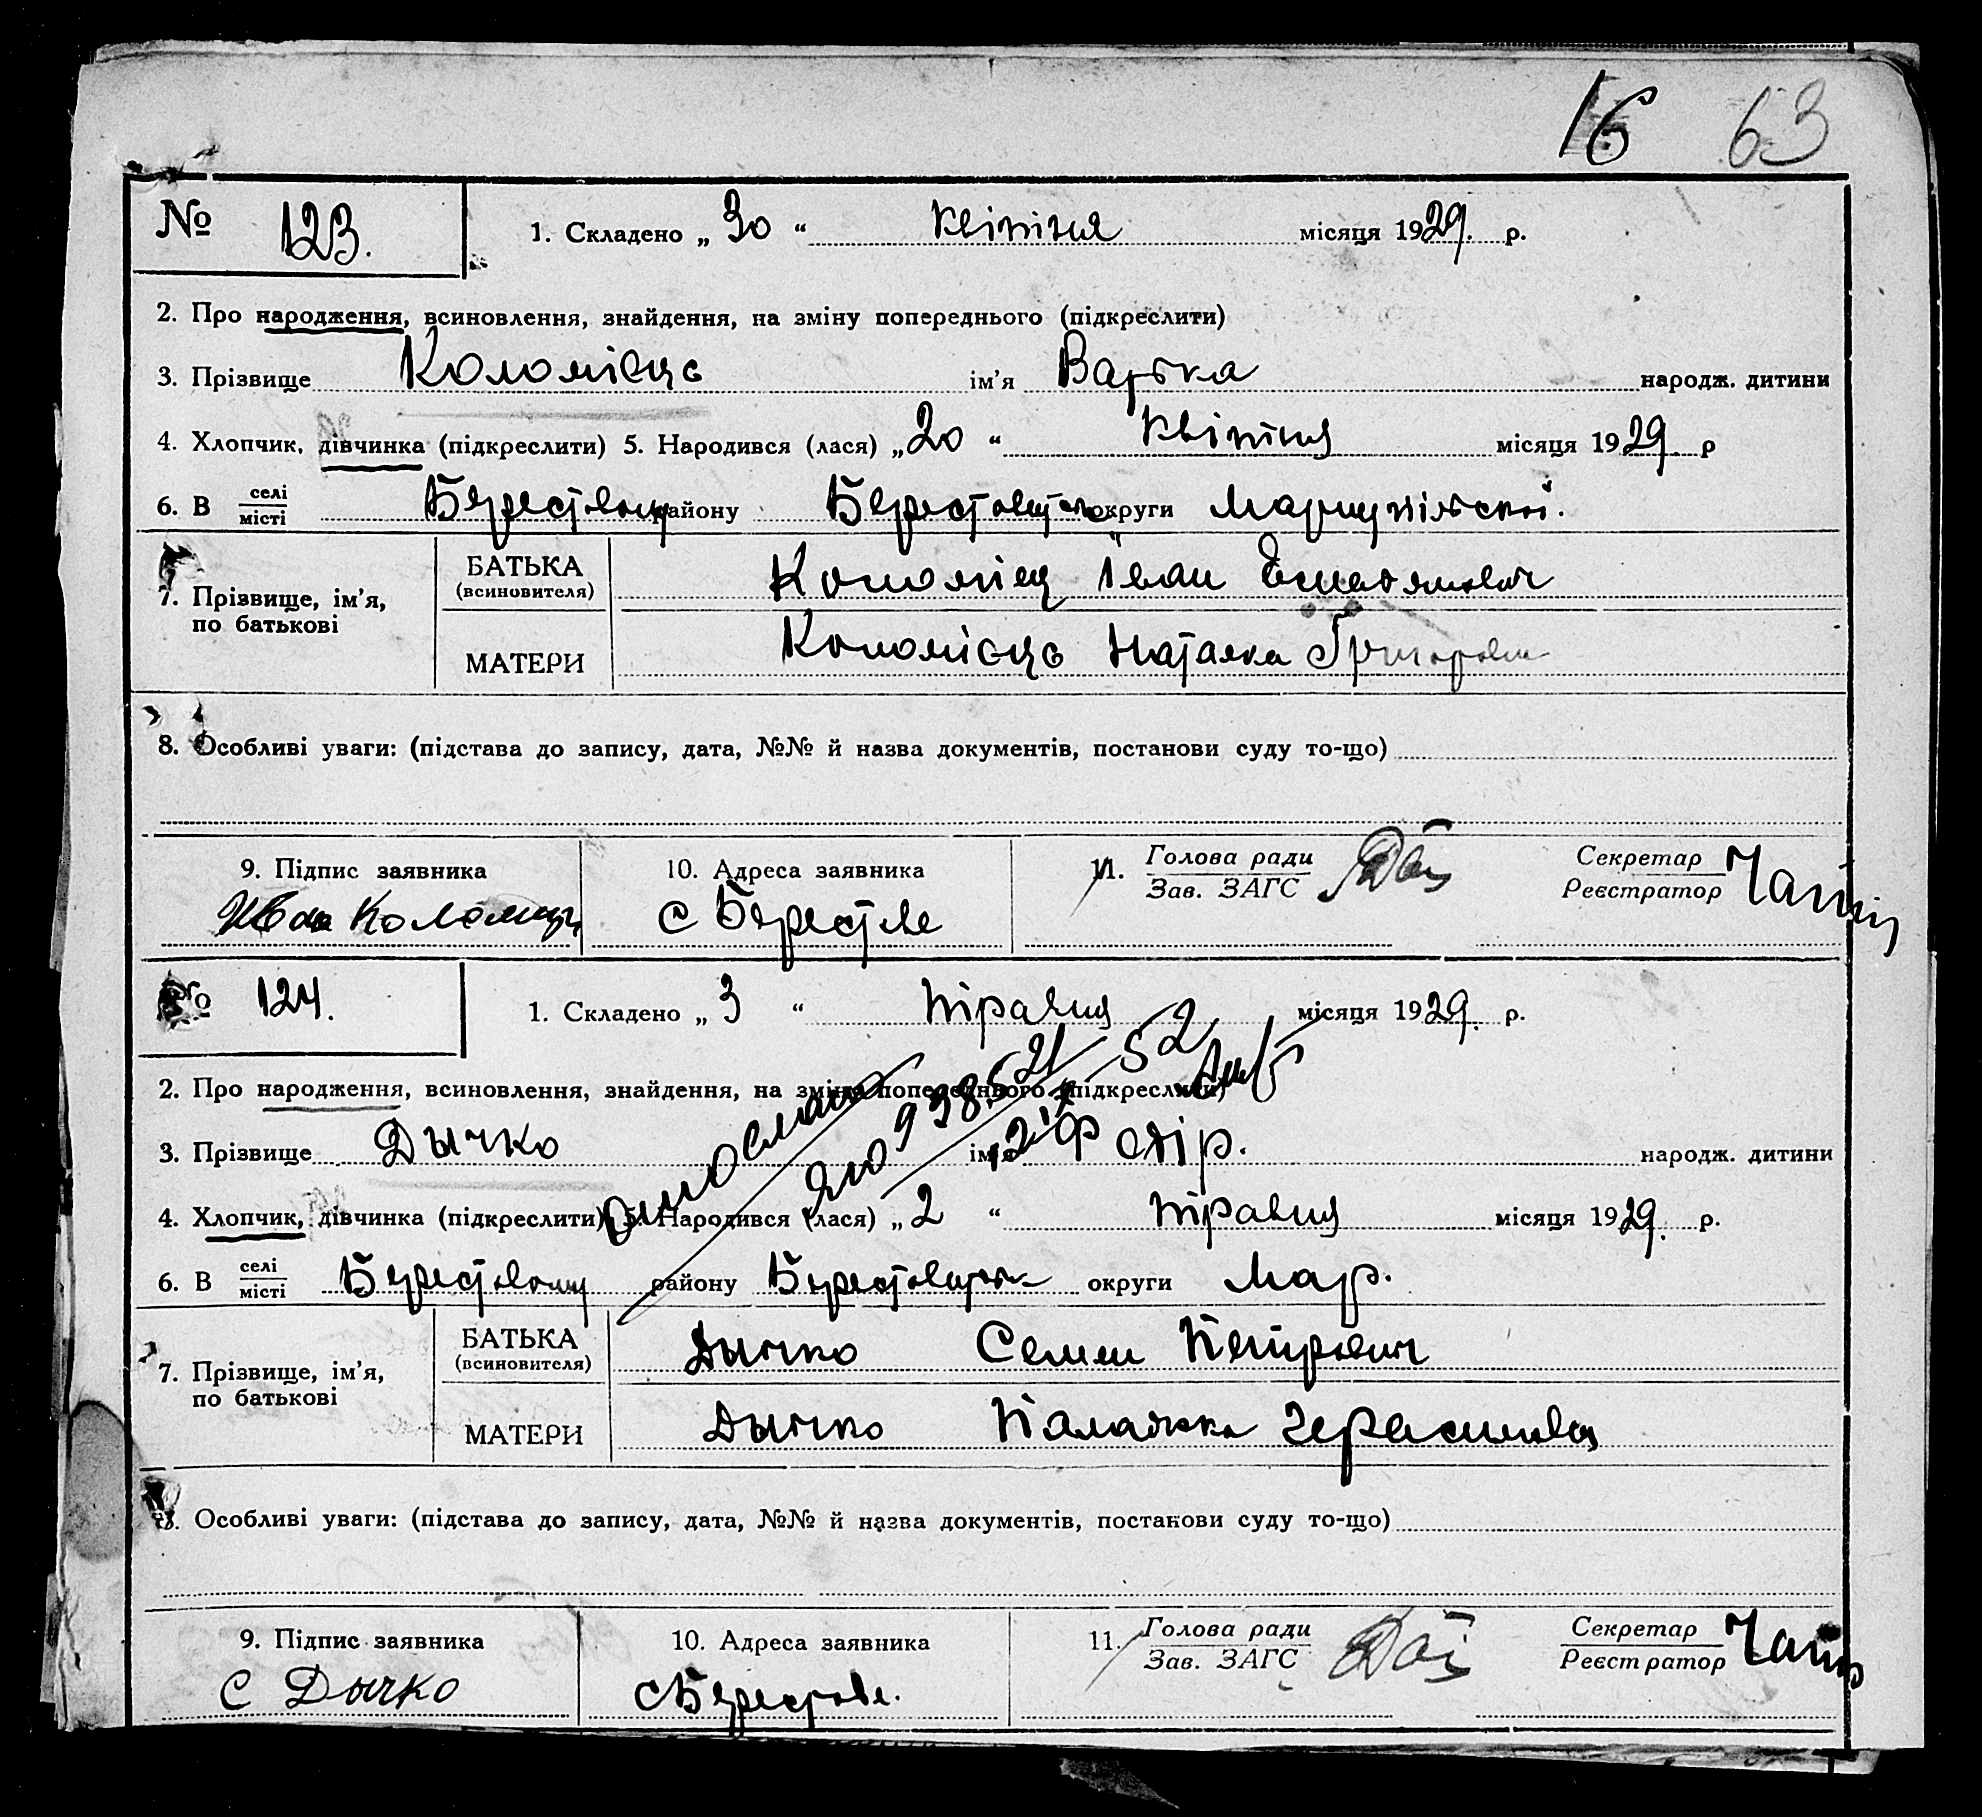 16 63
№ 123. 1. Складено „ 30 “ квітня місяця 1929. р.
2. Про народження, всиновлення, знайдення, на зміну попереднього (підкреслити)
3. Прізвище Коломієць ім'я Варька народж. дитини
4. Хлопчик, дівчинка (підкреслити) 5. Народився (лася) „ 20 “ квітня місяця 1929 р
6. В селі місті Берестовому району округи Маріупільської.
7. Прізвище, ім'я, по батькові
БАТЬКА (всиновителя) Коломієц Іван
МАТЕРИ Коломієць Наталка
8. Особливі уваги: (підстава до запису, дата, №№ й назва документів, постанови суду то-що)
9. Підпис заявника 10. Адреса заявника 11. Голова ради Зав. ЗАГС Секретар Реєстратор
с Берестове
№ 124. 1. Складено „ 3 “ травня місяця 1929. р.
2. Про народження, всиновлення, знайдення, на зміну попереднього (підкреслити)
3. Прізвище Дычко ім'я Федір. народж. дитини
4. Хлопчик, дівчинка (підкреслити) 5. Народився (лася) „ 2 “ травня місяця 1929. р.
6. В селі місті Берестовому району округи Мар.
7. Прізвище, ім'я, по батькові
БАТЬКА (всиновителя) Дычко Семен Петрович
МАТЕРИ Дычко Палажка Герасимовна
8. Особливі уваги: (підстава до запису, дата, №№ й назва документів, постанови суду то-що)
9. Підпис заявника 10. Адреса заявника 11. Голова ради Зав. ЗАГС Секретар Реєстратор
С Дычко с Берестове.